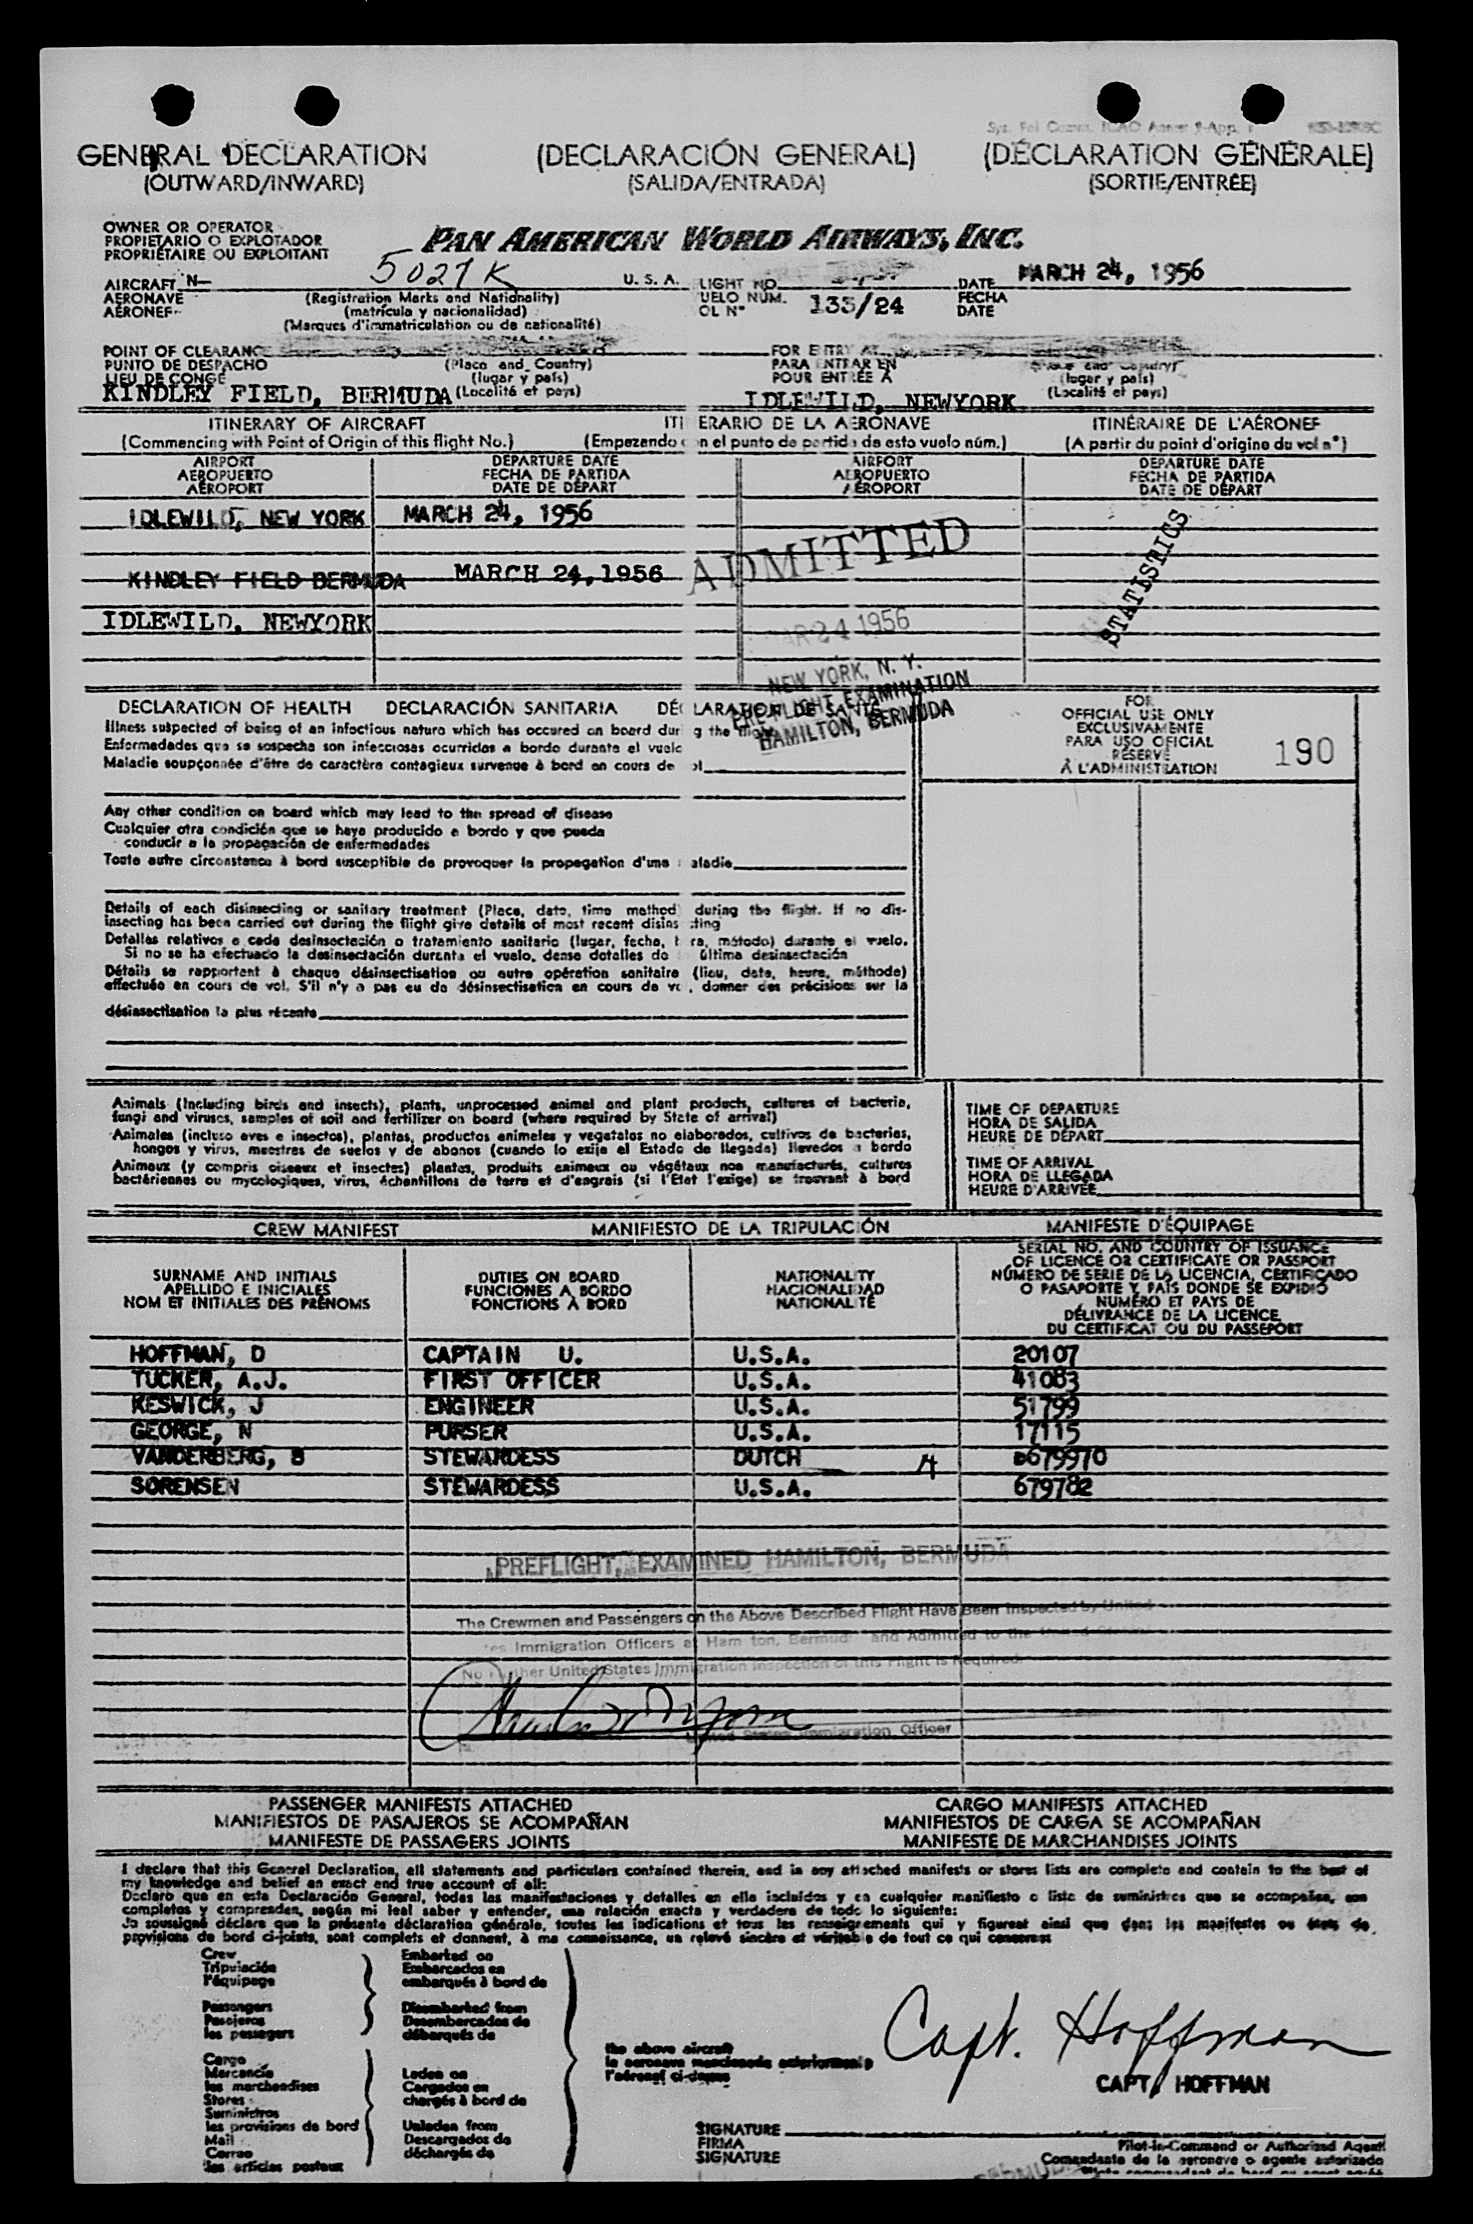 GENERAL DECLARATION (DECLARACIÓN GENERAL) (DÉCLARATION GÉNÉRALE)
(OUTWARD/INWARD) (SALIDA/ENTRADA) (SORTIE/ENTRÉE)
OWNER OR OPERATOR
PROPIETARIO O EXPLOTADOR
PROPRIÉTAIRE OU EXPLOITANT
PAN AMERICAN WORLD AIRWAYS, INC.
AIRCRAFT N— 5027K U. S. A. LIGHT NO. DATE MARCH 24, 1956
AERONAVE (Registration Marks and Nationality) UELO NÚM. 135/24 FECHA
AÉRONEF (matrícula y nacionalidad) OL N° DATE
(Marques d'immatriculation ou de nationalité)
POINT OF CLEARANCE FOR ENTRY AT
PUNTO DE DESPACHO (Place and Country) PARA ENTRAR EN
LIEU DE CONGÉ (lugar y país) POUR ENTRÉE À (lugar y país)
KINDLEY FIELD, BERMUDA (Localité et pays) IDLEWILD, NEWYORK (Localité et pays)
ITINERARY OF AIRCRAFT ITI ERARIO DE LA AERONAVE ITINÉRAIRE DE L'AÉRONEF
(Commencing with Point of Origin of this flight No.) (Empezando con el punto de partida de esto vuelo núm.) (A partir du point d'origine du vol n°)
AIRPORT DEPARTURE DATE AIRPORT DEPARTURE DATE
AEROPUERTO FECHA DE PARTIDA AEROPUERTO FECHA DE PARTIDA
AÉROPORT DATE DE DÉPART AÉROPORT DATE DE DÉPART
IDLEWILD, NEW YORK MARCH 24, 1956
ADMITTED
STATISTICS
KINDLEY FIELD BERMUDA MARCH 24, 1956
IDLEWILD, NEWYORK
AR 24 1956
NEW YORK, N. Y.
PREFLIGHT EXAMINATION
HAMILTON, BERMUDA
DECLARATION OF HEALTH DECLARACIÓN SANITARIA DÉCLARATION DE SANTÉ
Illness suspected of being of an infectious nature which has occured on board during the flight
Enfermedades que se sospecha son infecciosas ocurridas a bordo durante el vuelo
Maladie soupçonnée d'être de caractère contagieux survenue à bord en cours de ol
FOR
OFFICIAL USE ONLY
EXCLUSIVAMENTE
PARA USO OFICIAL
RÉSERVÉ
À L'ADMINISTRATION
190
Any other condition on board which may lead to the spread of disease
Cualquier otra condición que se haya producido a bordo y que pueda
conducir a la propagación de enfermedades
Toute autre circonstance à bord susceptible de provoquer la propagation d'une maladie
Details of each disinsecting or sanitary treatment (Place, date, time method) during the flight. If no dis-
insecting has been carried out during the flight give details of most recent disins cting
Detalles relativos a cada desinsectación o tratamiento sanitario (lugar, fecha, hora, método) durante el vuelo.
Si no se ha efectuado la desinsectación durante el vuelo, dense detalles de última desinsectación
Détails se rapportant à chaque désinsectisation ou autre opération sanitaire (lieu, date, heure, méthode)
effectuée en cours de vol. S'il n'y a pas eu de désinsectisation en cours de vo , donner des précisions sur la
désinsectisation la plus récente
Animals (Including birds and insects), plants, unprocessed animal and plant products, cultures of bacteria,
fungi and viruses, samples of soil and fertilizer on board (where required by State of arrival)
Animales (incluso aves e insectos), plantas, productos animales y vegetales no elaborados, cultivos de bacterias,
hongos y virus, muestras de suelos y de abonos (cuando lo exija el Estado de llegada) llevados a bordo
Animaux (y compris oiseaux et insectes) plantes, produits animaux ou végétaux non manufacturés, cultures
bactériennes ou mycologiques, virus, échantillons de terre et d'engrais (si l'Etat l'exige) se trouvant à bord
TIME OF DEPARTURE
HORA DE SALIDA
HEURE DE DÉPART
TIME OF ARRIVAL
HORA DE LLEGADA
HEURE D'ARRIVÉE
CREW MANIFEST MANIFIESTO DE LA TRIPULACIÓN MANIFESTE D'ÉQUIPAGE
SURNAME AND INITIALS
APELLIDO E INICIALES
NOM ET INITIALES DES PRÉNOMS
DUTIES ON BOARD
FUNCIONES A BORDO
FONCTIONS À BORD
NATIONALITY
NACIONALIDAD
NATIONALITÉ
SERIAL NO. AND COUNTRY OF ISSUANCE
OF LICENCE OR CERTIFICATE OR PASSPORT
NÚMERO DE SERIE DE LA LICENCIA, CERTIFICADO
O PASAPORTE Y PAÍS DONDE SE EXPIDIÓ
NUMÉRO ET PAYS DE
DÉLIVRANCE DE LA LICENCE,
DU CERTIFICAT OU DU PASSEPORT
HOFFMAN, D CAPTAIN U. U.S.A. 20107
TUCKER, A.J. FIRST OFFICER U.S.A. 41083
KESWICK, J ENGINEER U.S.A. 51799
GEORGE, N PURSER U.S.A. 17115
VANDERBERG, B STEWARDESS DUTCH 679970
SORENSEN STEWARDESS U.S.A. 679782
PREFLIGHT, EXAMINED HAMILTON, BERMUDA
The Crewmen and Passengers on the Above Described Flight Have Been Inspected by United
es Immigration Officers at Ham ton, Bermuda and Admitted to the United States
No ther United States Immigration Inspection of this Flight is Required.
United States Immigration Officer
PASSENGER MANIFESTS ATTACHED CARGO MANIFESTS ATTACHED
MANIFIESTOS DE PASAJEROS SE ACOMPAÑAN MANIFIESTOS DE CARGA SE ACOMPAÑAN
MANIFESTE DE PASSAGERS JOINTS MANIFESTE DE MARCHANDISES JOINTS
I declare that this General Declaration, all statements and particulars contained therein, and in any attached manifests or stores lists are complete and contain to the best of
my knowledge and belief an exact and true account of all:
Declaro que en esta Declaración General, todas las manifestaciones y detalles en ella incluídos y en cualquier manifiesto o lista de suministros que se acompañan, son
completos y comprenden, según mi leal saber y entender, una relación exacta y verdadera de todo lo siguiente:
Je soussigné déclare que la présente déclaration générale, toutes les indications et tous les renseignements qui y figurent ainsi que dans les manifestes ou états de
provisions de bord ci-joints, sont complets et donnent, à ma connaissance, un relevé sincère et véritable de tout ce qui concerne:
Crew
Tripulación
l'équipage
Passengers
Pasajeros
les passagers
Embarked on
Embarcados en
embarqués à bord de
Disembarked from
Desembarcados de
débarqués de
Cargo
Mercancía
les marchandises
Stores
Suministros
les provisions de bord
Mail
Correo
les articles postaux
Laden on
Cargados en
chargés à bord de
Unladen from
Descargados de
déchargés de
the above aircraft
la aeronave mencionada anteriormente
l'aéronef ci-dessus
Capt. Hoffman
CAPT. HOFFMAN
SIGNATURE
FIRMA
SIGNATURE
Pilot-in-Command or Authorized Agent
Comandante de la aeronave o agente autorizado